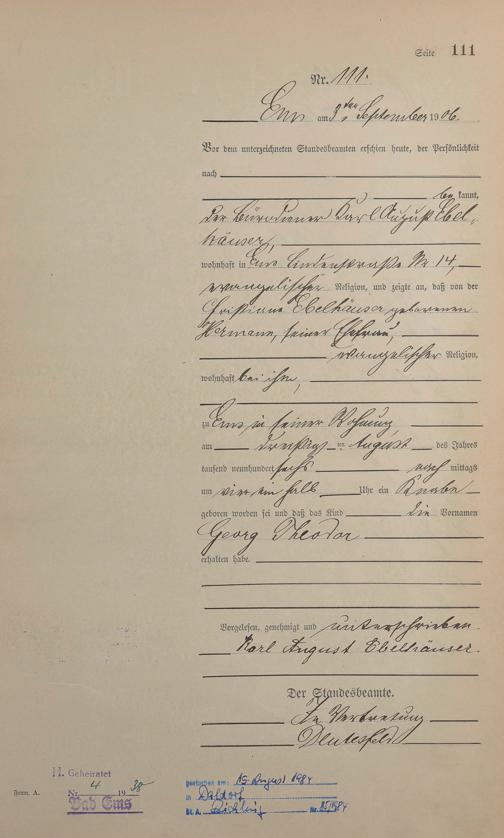 Seite 111
Nr. 111.
Ems am 3ten September 1906.
Vor dem unterzeichneten Standesbeamten erschien heute, der Persönlichkeit
nach
be kannt,
der Bürodiener Karl August Ebel-
häuser,
wohnhaft in Ems Lindenstraße No 14,
evangelischer Religion, und zeigte an, daß von der
Christiane Ebelhäuser geborenen
Hermann, seiner Ehefrau,
evangelischer Religion,
wohnhaft bei ihm,
zu Ems in seiner Wohnung
am August des Jahres
tausend neunhundert sechs nach mittags
um vier ein halb Uhr ein Knabe
geboren worden sei und daß das Kind die Vornamen
Georg Theodor
erhalten habe.
Vorgelesen, genehmigt und unterschrieben
Karl August Ebelhäuser.
Der Standesbeamte.
In Vertretung
H. Geheiratet
Nr. 4 1930
Form. A.
Bad Ems
am: 15. August 1984
in